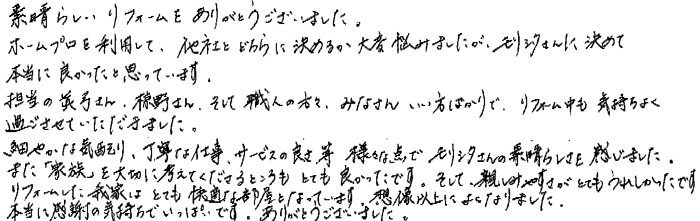 素晴らしいリフォームをありがとうございました。
ホームプロを利用して、他社とどちらに決めるか大変悩みましたが、モリシタさんに決めて
本当に良かったと思っています。
担当の眞弓さん、椋野さん、そして職人の方々、みなさんいい方ばかりで、リフォーム中も気持ちよく
過ごさせていただきました。
細やかな気配り、丁寧な仕事、サービスの良さ等様々な点でモリシタさんの素晴らしさを感じました。
また「家族」を大切に考えてくださるところもとても良かったです。そして、親しみやすさがとてもうれしかったです
リフォームした我家はとても快適な部屋となっています。想像以上によくなりました。
本当に感謝の気持ちでいっぱいです。ありがとうございました。